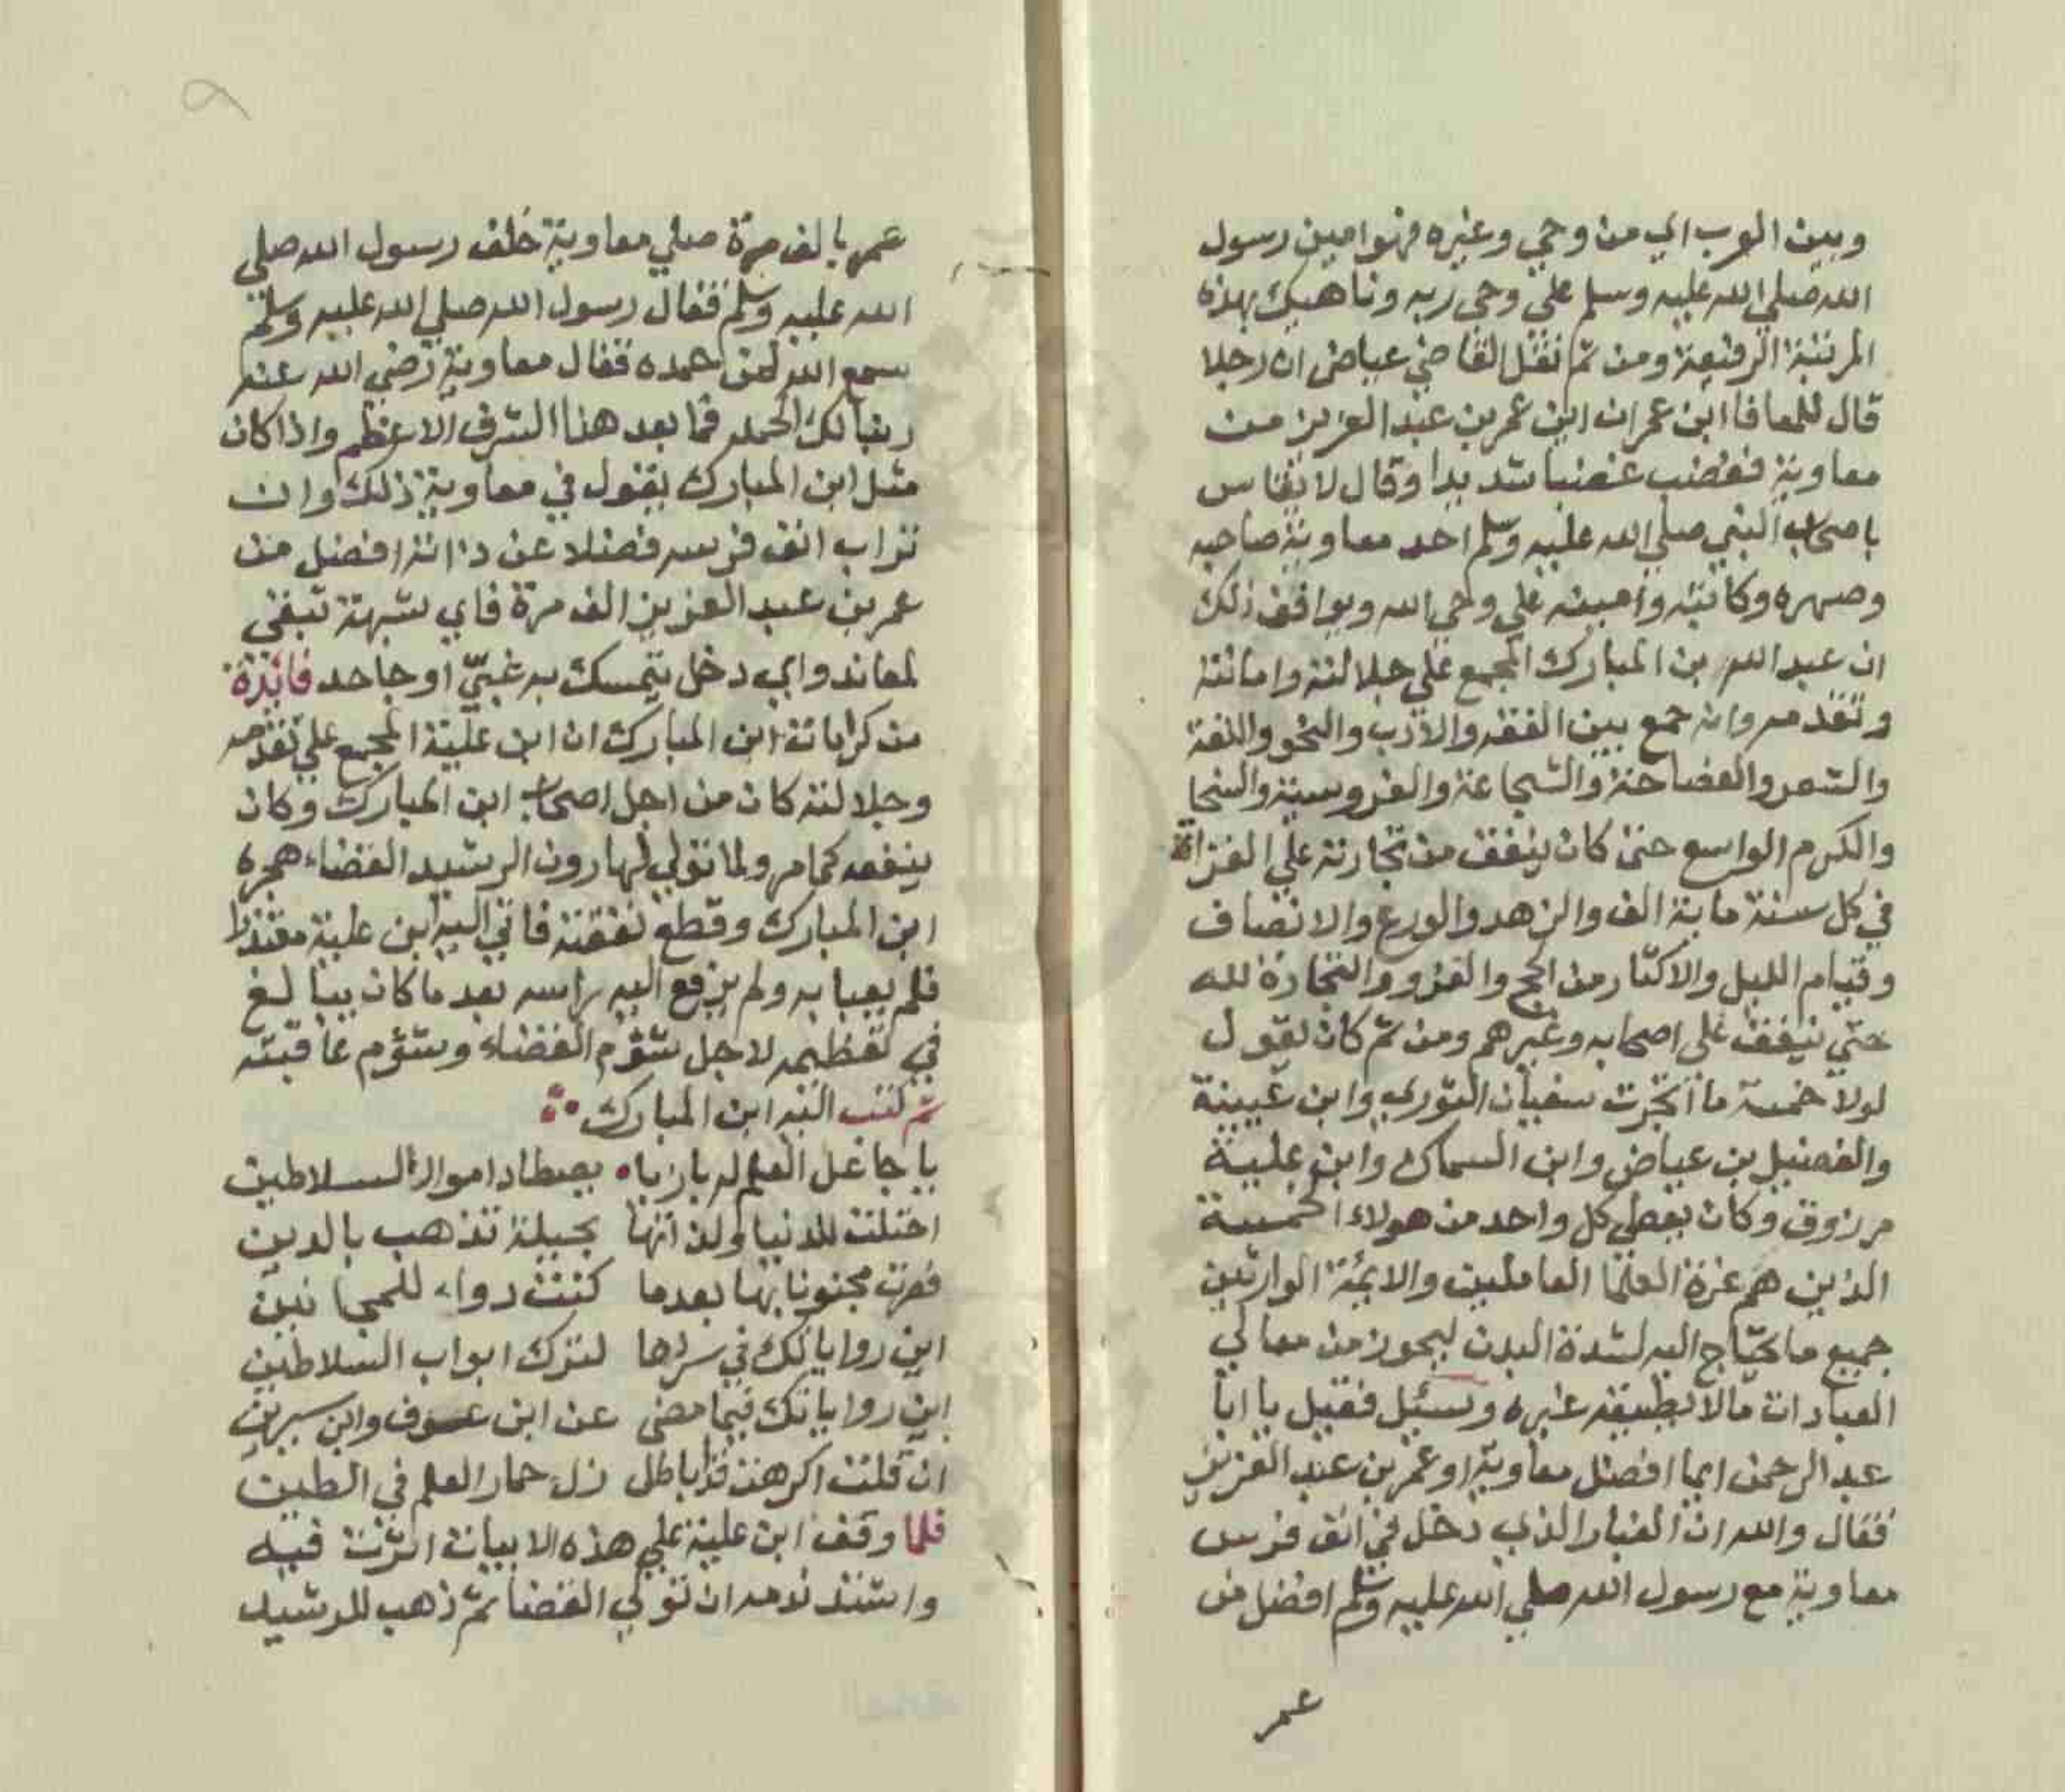 وبين العرب اي من وحي وغيره فهو امين رسول
الله صلي الله عليه وسلم علي وحي ربه وناهيك بهذه
المرتبة الرفيعة ومن ثم نقل القاضي عياض ان رجلا
قال للمعافا ابن عمران اين عمر بن عبد العزيز من
معاوية فغضب غضبا شديدا وقال لا يقاس
باصحاب النبي صلي الله عليه وسلم احد معاوية صاحبه
وصهره وكاتبه وامينه علي وحي الله ويوافق ذلك
ان عبد الله بن المبارك المجمع علي جلالته وامانته
وتقدمه وانه جمع بين الفقه والادب والنحو واللغة
والشعر والفصاحة والشجاعة والفروسية والسخا
والكرم الواسع حتى كان ينفق من تجارته علي الفقراء
في كل سنة ماية الف والزهد والورع والانصاف
وقيام الليل والاكثار من الحج والغزو والتجارة لله
حتي ينفق علي اصحابه وغيرهم ومن ثم كان يقول
لولا خمسة ما اتجرت سفيان الثوري وابن عيينة
والفضيل بن عياض وابن السماك وابن علية
مرزوق وكان يعطي كل واحد من هولاء الخمسة
الذين هم غرة العلما العاملين والايمة الوارثين
جميع ما يحتاج اليه لشدة البدن ليحوز من معالي
العبادات مالا يطيقه غيره وسئيل فقيل يا ابا
عبد الرحمن ايما افضل معاوية او عمر بن عبد العزيز
فقال والله ان الغبار الذي دخل في انف فرس
معاوية مع رسول الله صلي الله عليه وسلم افضل من
عمر
عمر بالف مرة صلي معاوية خلف رسول الله صلي
الله عليه وسلم فقال رسول الله صلي الله عليه وسلم
سمع الله لمن حمده فقال معاوية رضي الله عنه
ربنا لك الحمد فما بعد هذا الشرف الاعظم واذا كان
مثل ابن المبارك يقول في معاوية ذلك وان
تراب انف فرسه فضلا عن ذاته افضل من
عمر بن عبد العزيز الف مرة فاي شبهة تبقي
لمعاند واي دخل يتمسك به غبيّ او جاحد فائدة
من كرامات ابن المبارك ان ابن علية المجمع علي تقدمه
وجلالته كان من اجل اصحاب ابن المبارك وكان
ينفعه كما مر ولما تولي لهارون الرشيد القضاء هجره
ابن المبارك وقطع نفقته فاتي اليه ابن علية معتذرا
فلم يعبا به ولم يرفع اليه راسه بعد ما كان يبالغ
في تعظيمه لاجل شؤم القضاء وشؤم عاقبته
ثم كتب اليه ابن المبارك
يا جاعل العلم له بازيا يصطاد اموال السلاطين
احتلت للدنيا ولذاتها بحيلة تذهب بالدين
فصرت مجنونا بها بعدما كنت دواء للمجانين
اين رواياتك في سردها لترك ابواب السلاطين
اين رواياتك فيما مضي عن ابن عوف وابن سيرين
ان قلت اكرهت فذا باطل زل حمار العلم في الطين
فلما وقف ابن علية علي هذه الابيات اثرت فيه
واشتد ندمه ان تولي القضا ثم ذهب للرشيد